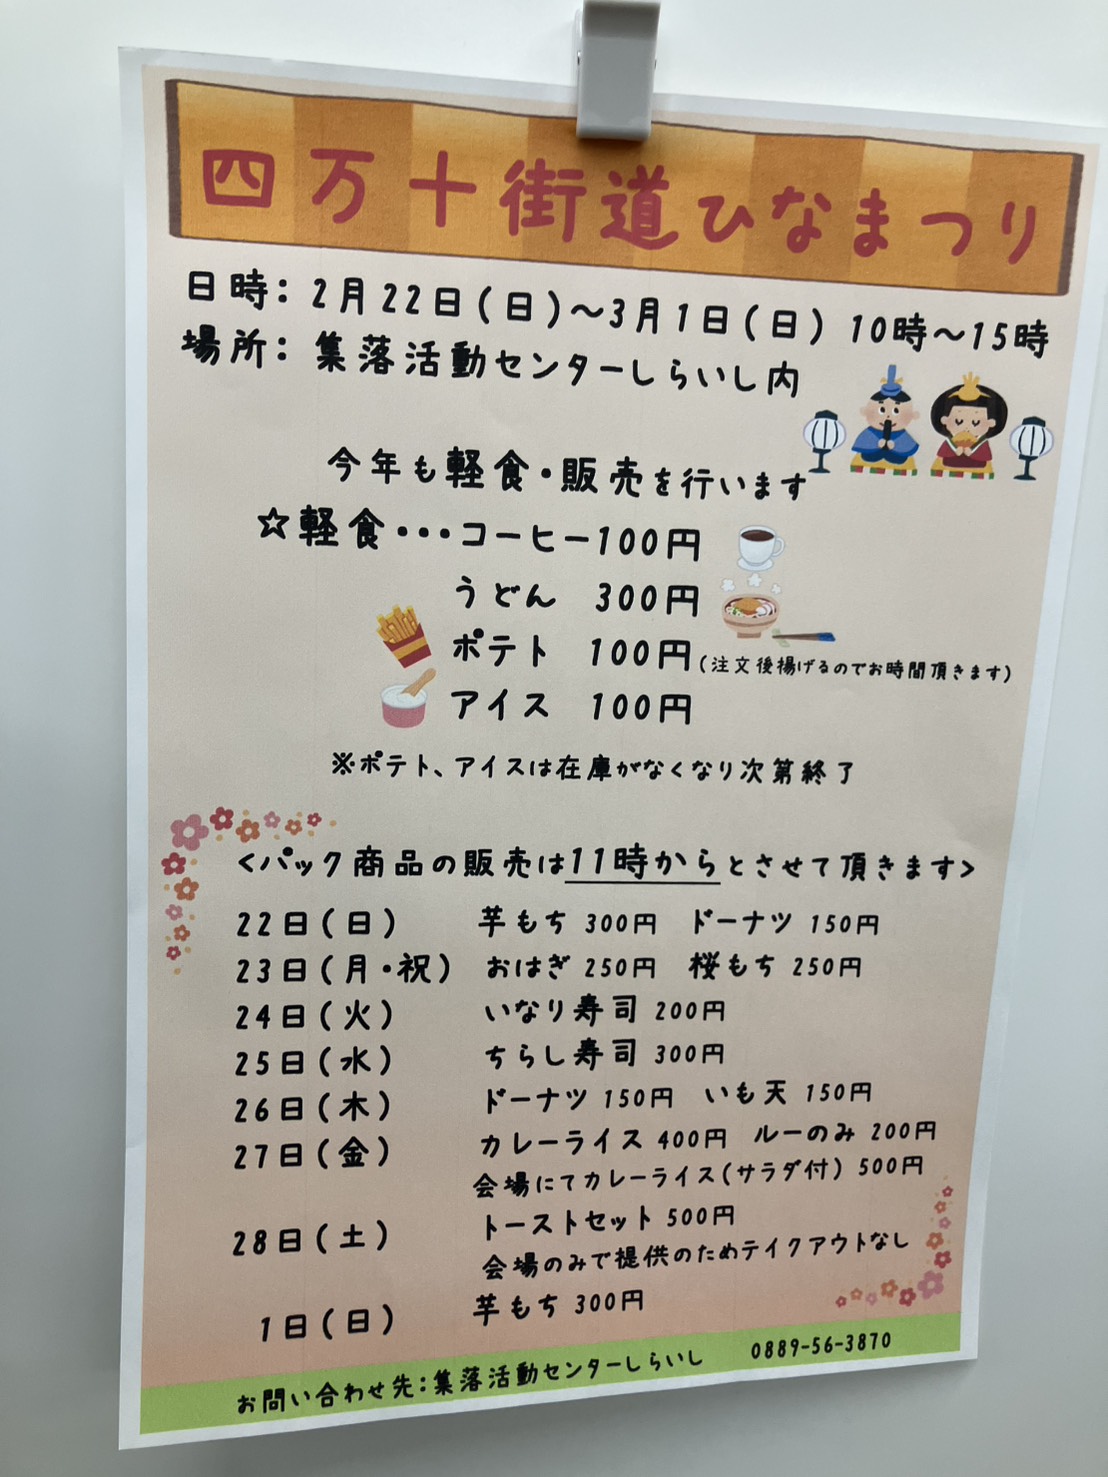 四万十街道ひなまつり
日時：2月22日(日)～3月1日(日) 10時～15時
場所：集落活動センターしらいし内
今年も軽食・販売を行います
☆軽食・・・コーヒー100円
うどん 300円
ポテト 100円(注文後揚げるのでお時間頂きます)
アイス 100円
※ポテト、アイスは在庫がなくなり次第終了
<パック商品の販売は11時からとさせて頂きます>
22日(日) 芋もち 300円 ドーナツ 150円
23日(月・祝) おはぎ 250円 桜もち 250円
24日(火) いなり寿司 200円
25日(水) ちらし寿司 300円
26日(木) ドーナツ 150円 いも天 150円
27日(金) カレーライス 400円 ルーのみ 200円
会場にてカレーライス(サラダ付) 500円
28日(土) トーストセット 500円
会場のみで提供のためテイクアウトなし
1日(日) 芋もち 300円
お問い合わせ先：集落活動センターしらいし 0889-56-3870